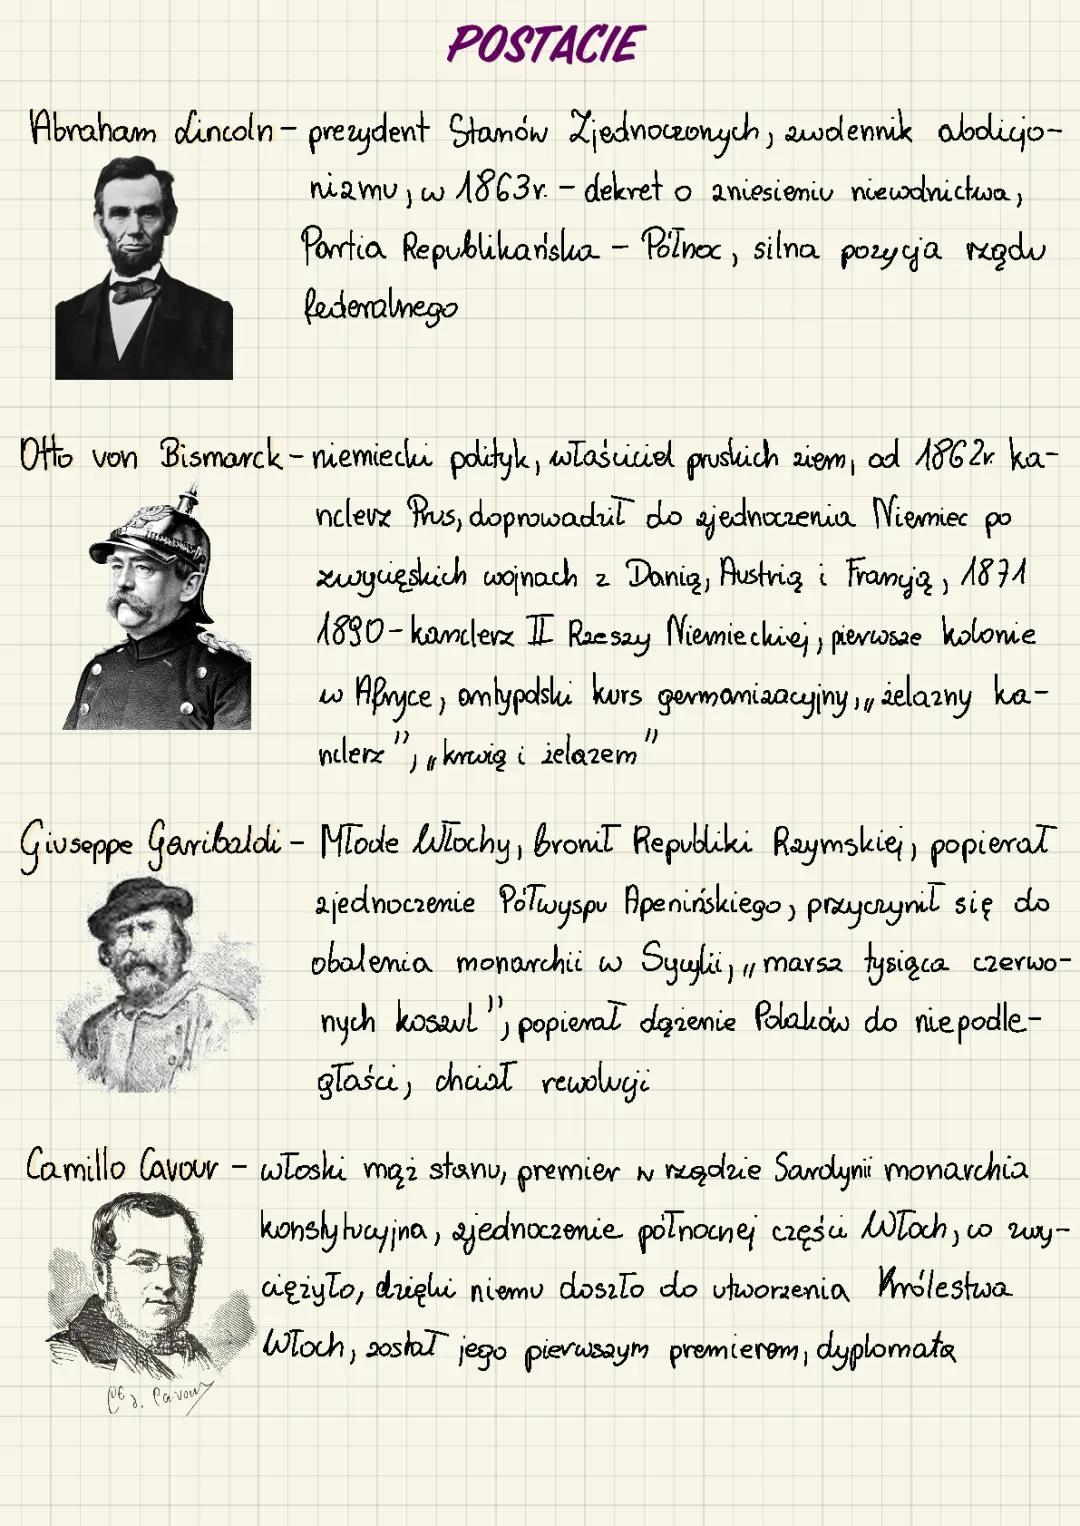 POSTACIE
Abraham Lincoln - prezydent Stanów Zjednoczonych, zwolennik abolicjo-
nizmu, w 1863r. - dekret o zniesieniu niewolnictwa,
Partia Republikańska - Północ, silna pozycja rządu
federalnego
Otto von Bismarck - niemiecki polityk, właściciel pruskich ziem, od 1862r. ka-
nclerz Prus, doprowadził do zjednoczenia Niemiec po
zwycięskich wojnach z Danią, Austrią i Francją, 1871
1890 - kanclerz II Rzeszy Niemieckiej, pierwsze kolonie
w Afryce, antypolski kurs germanizacyjny, „żelazny ka-
nclerz”, „krwią i żelazem”
Giuseppe Garibaldi - Młode Włochy, bronił Republiki Rzymskiej, popierał
zjednoczenie Półwyspu Apenińskiego, przyczynił się do
obalenia monarchii w Sycylii, „marsz tysiąca czerwo-
nych koszul”, popierał dążenie Polaków do niepodle-
głości, chciał rewolucji
Camillo Cavour - włoski mąż stanu, premier w rządzie Sardynii monarchia
konstytucyjna, zjednoczenie północnej części Włoch, co zwy-
ciężyło, dzięki niemu doszło do utworzenia Królestwa
Włoch, został jego pierwszym premierem, dyplomata
C. Cavour